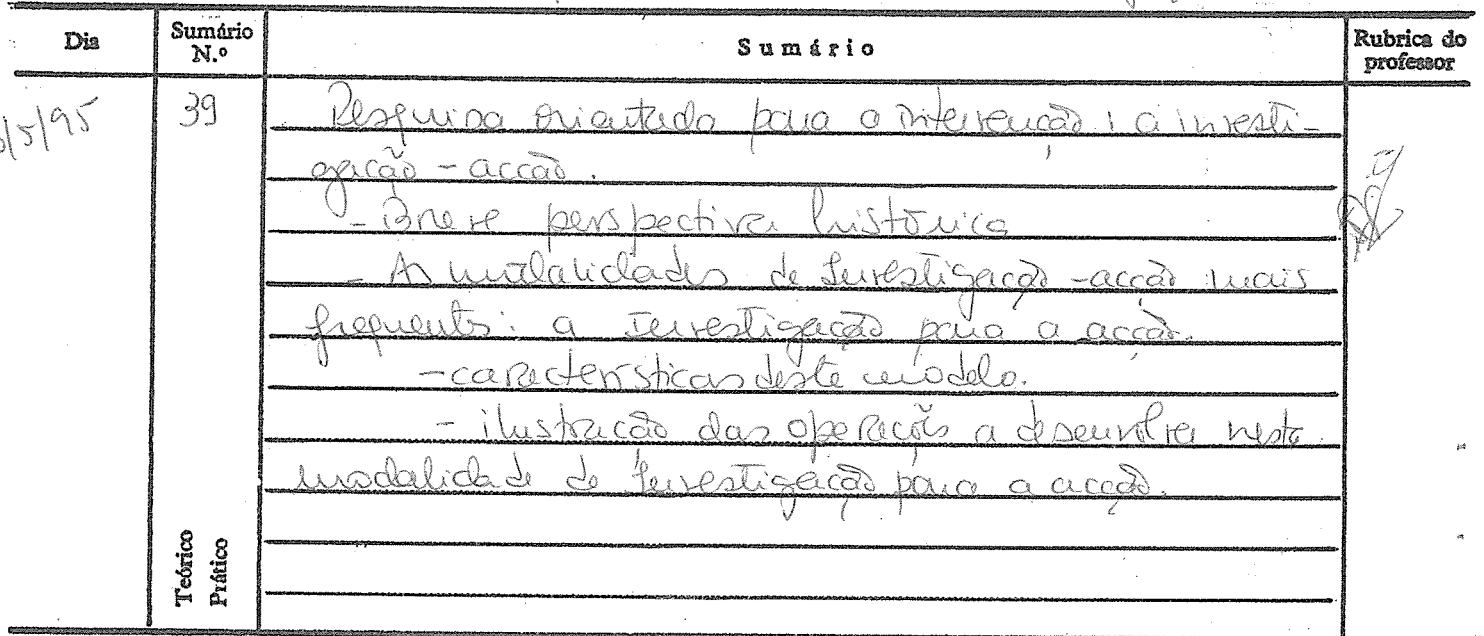 Dia
Sumário N.º
Sumário
Rubrica do professor
/5/95
39
Pesquisa orientada para a intervenção: a investi-
gação - acção.
- Breve perspectiva histórica
- As modalidades de Investigação - acção mais
frequentes: a Investigação para a acção.
- características deste modelo.
- ilustração das operações a desenvolver nesta
modalidade de Investigação para a acção.
Teórico
Prático